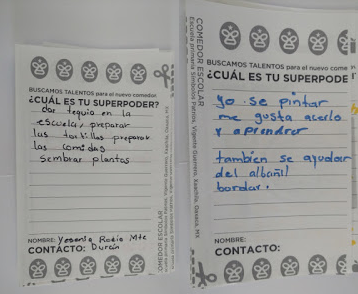 BUSCAMOS TALENTOS para el nuevo comedor
¿CUÁL ES TU SUPERPODER?
dar tequio en la
escuela, preparar
las tortillas preparar
las comidas
sembrar plantas
NOMBRE: Yesenia Rocio Mtz
CONTACTO: Durán
COMEDOR ESCOLAR
COMEDOR ESCOLAR
Escuela primaria Símbolos Patrios, Vigente Guerrero, Xaachila, Oaxaca, MX
BUSCAMOS TALENTOS para el nuevo come
¿CUÁL ES TU SUPERPODE
yo se pintar
me gusta acerlo
y aprender
tambien se ayudar
del albañil
bordar.
NOMBRE:
CONTACTO: